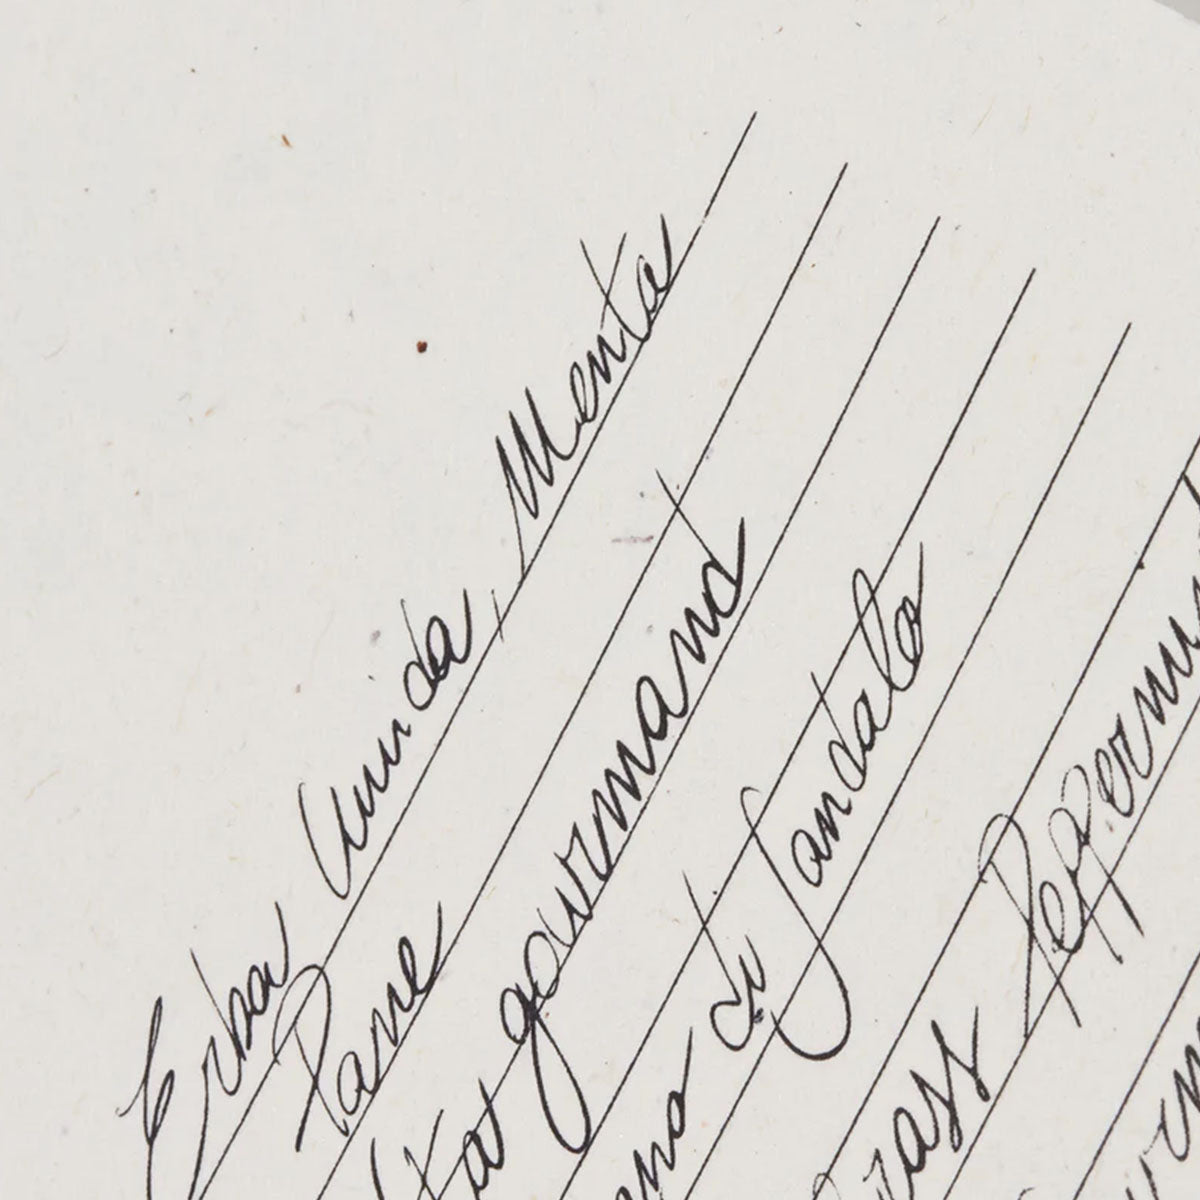 Erba Umida, Menta
Pane
gourmand
di Sandalo
Peppermi